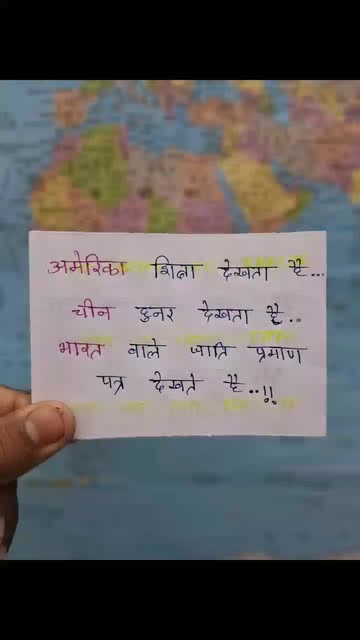 अमेरिका शिक्षा देखता है...
चीन हुनर देखता है..
भारत वाले जाति प्रमाण
पत्र देखते है..!!